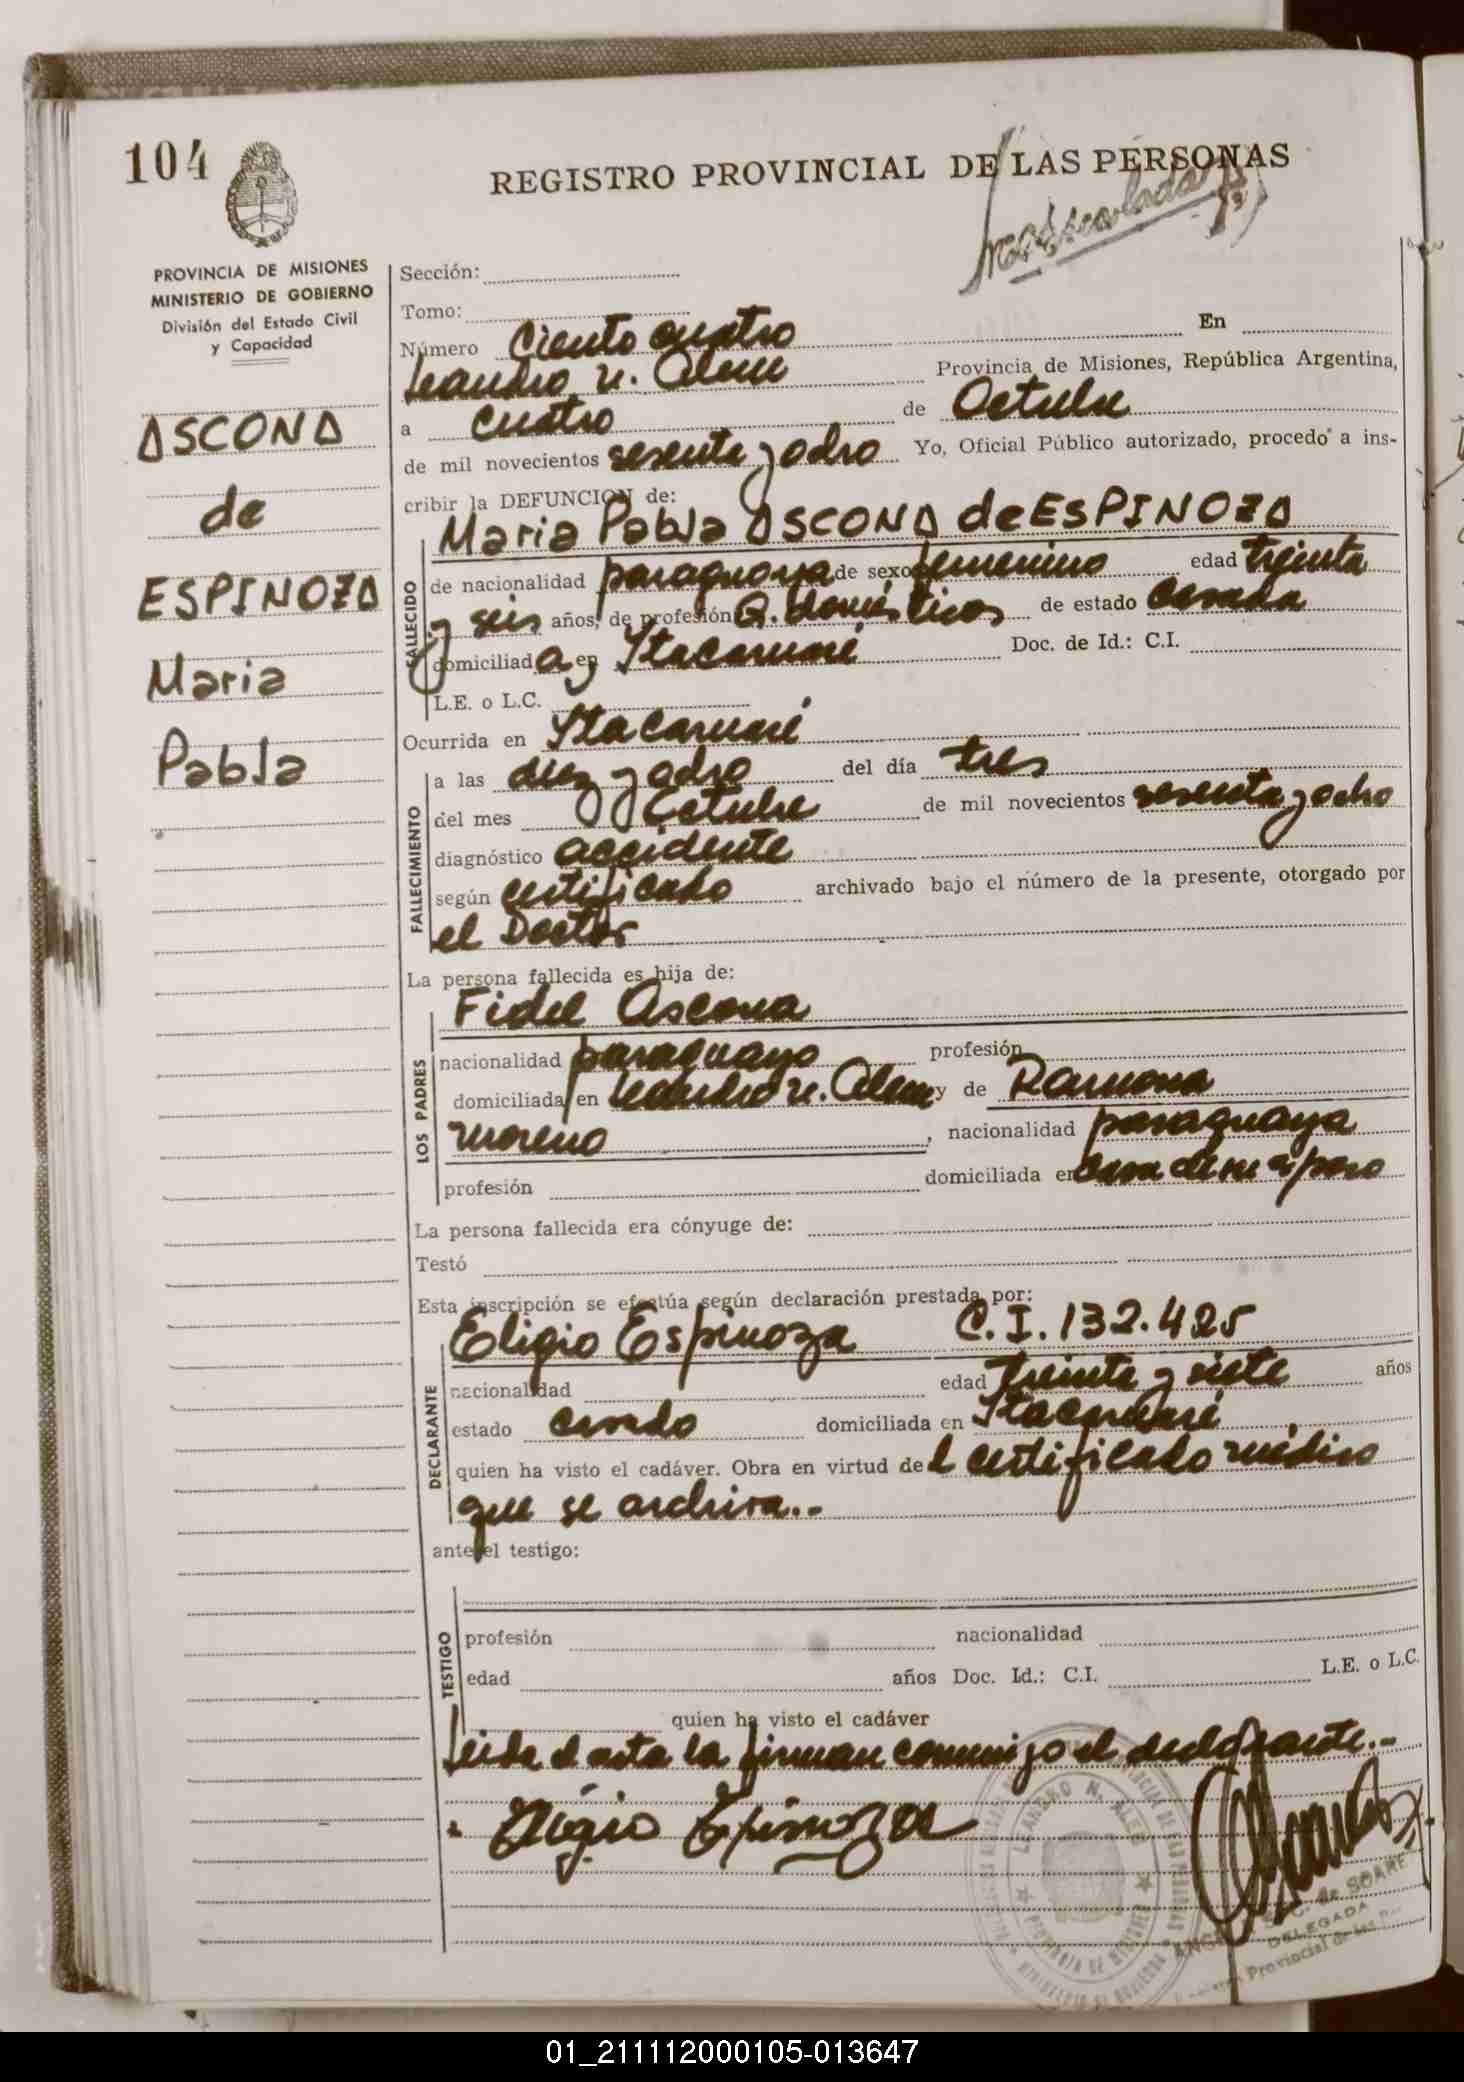 104
REGISTRO PROVINCIAL DE LAS PERSONAS
PROVINCIA DE MISIONES
MINISTERIO DE GOBIERNO
División del Estado Civil
y Capacidad
ASCONA
de
ESPINOZA
Maria
Pabla
Sección:
Tomo:
Número Ciento cuatro En
Leandro N. Alem Provincia de Misiones, República Argentina,
a cuatro de Octubre
de mil novecientos sesenta y ocho Yo, Oficial Público autorizado, procedo a ins-
cribir la DEFUNCION de:
Maria Pabla ASCONA de ESPINOZA
FALLECIDO
de nacionalidad paraguaya de sexo femenino edad treinta
y seis años, de profesión Q. domésticos de estado casada
domiciliada en Itacaruaré Doc. de Id.: C.I.
L.E. o L.C.
Ocurrida en Itacaruaré
FALLECIMIENTO
a las diez y ocho del día tres
del mes Octubre de mil novecientos sesenta y ocho
diagnóstico accidente
según certificado archivado bajo el número de la presente, otorgado por
el Doctor
La persona fallecida es hija de:
LOS PADRES
Fidel Ascona
nacionalidad paraguayo profesión
domiciliada en Leandro N. Alem y de Ramona
Moreno, nacionalidad paraguaya
profesión domiciliada en casa de su esposo
La persona fallecida era cónyuge de:
Testó
Esta inscripción se efectúa según declaración prestada por:
DECLARANTE
Eligio Espinoza C.I. 132.425
nacionalidad edad treinta y siete años
estado casado domiciliada en Itacaruaré
quien ha visto el cadáver. Obra en virtud del certificado médico
que se archiva..-
ante el testigo:
TESTIGO
profesión nacionalidad
edad años Doc. Id.: C.I. L.E. o L.C.
quien ha visto el cadáver
Leida el acta la firman conmigo el declarante.-
Eligio Espinoza
LEANDRO N. ALEM
PROVINCIA DE MISIONES
MINISTERIO DE GOBIERNO
de SOARE
DELEGADA
Provincial de las
01_211112000105-013647